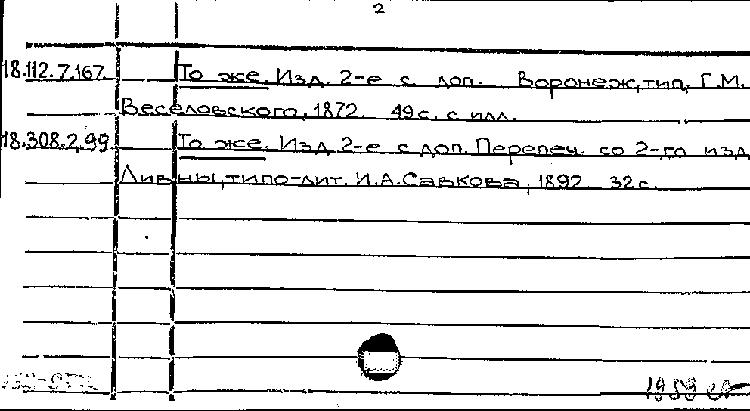 2
18.112.7.167. То же. Изд. 2-е с доп. Воронеж, тип. Г.М.
Веселовского, 1872 49 с. с илл.
18.308.2.99. То же. Изд. 2-е с доп. Перепеч. со 2-го изд
Ливны, типо-лит. И.А.Савкова, 1892 32 с.